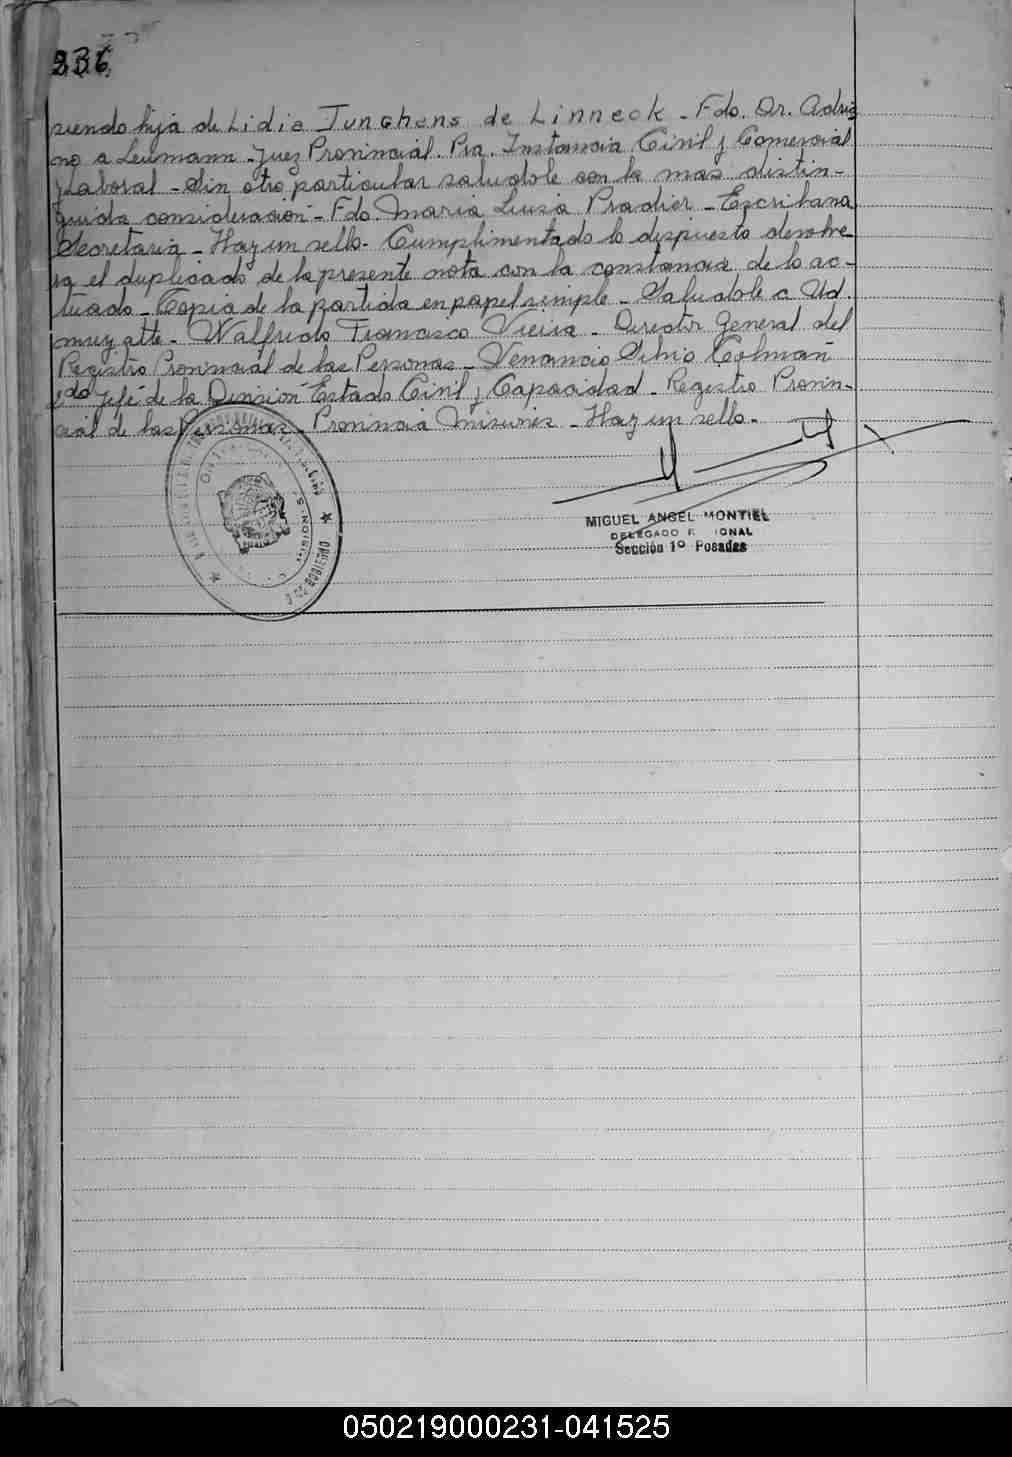 236
siendo hija de Lidia Junghans de Linneck - Fdo. Dr. Adria
no A Leumann - Juez Provincial. Pra. Instancia Civil y Comercial
y Laboral - Sin otro particular saludole con la mas distin-
guida consideracion - Fdo. Maria Luisa Pradier - Escribana
Secretaria - Hay un sello. Cumplimentado lo dispuesto devolve-
ra el duplicado de la presente nota con la constancia de lo ac-
tuado - Copia de la partida en papel simple - Saludole a Ud.
muy atte - Walfredo Francisco Vieira - Director General del
Registro Provincial de las Personas - Venancio Silvio Colman
Jefe de la Division Estado Civil y Capacidad - Registro Provin-
cial de las Personas - Provincia Misiones - Hay un sello -
MIGUEL ANGEL MONTIEL
DELEGADO
Sección 1º Posadas
GOBIERNO
050219000231-041525